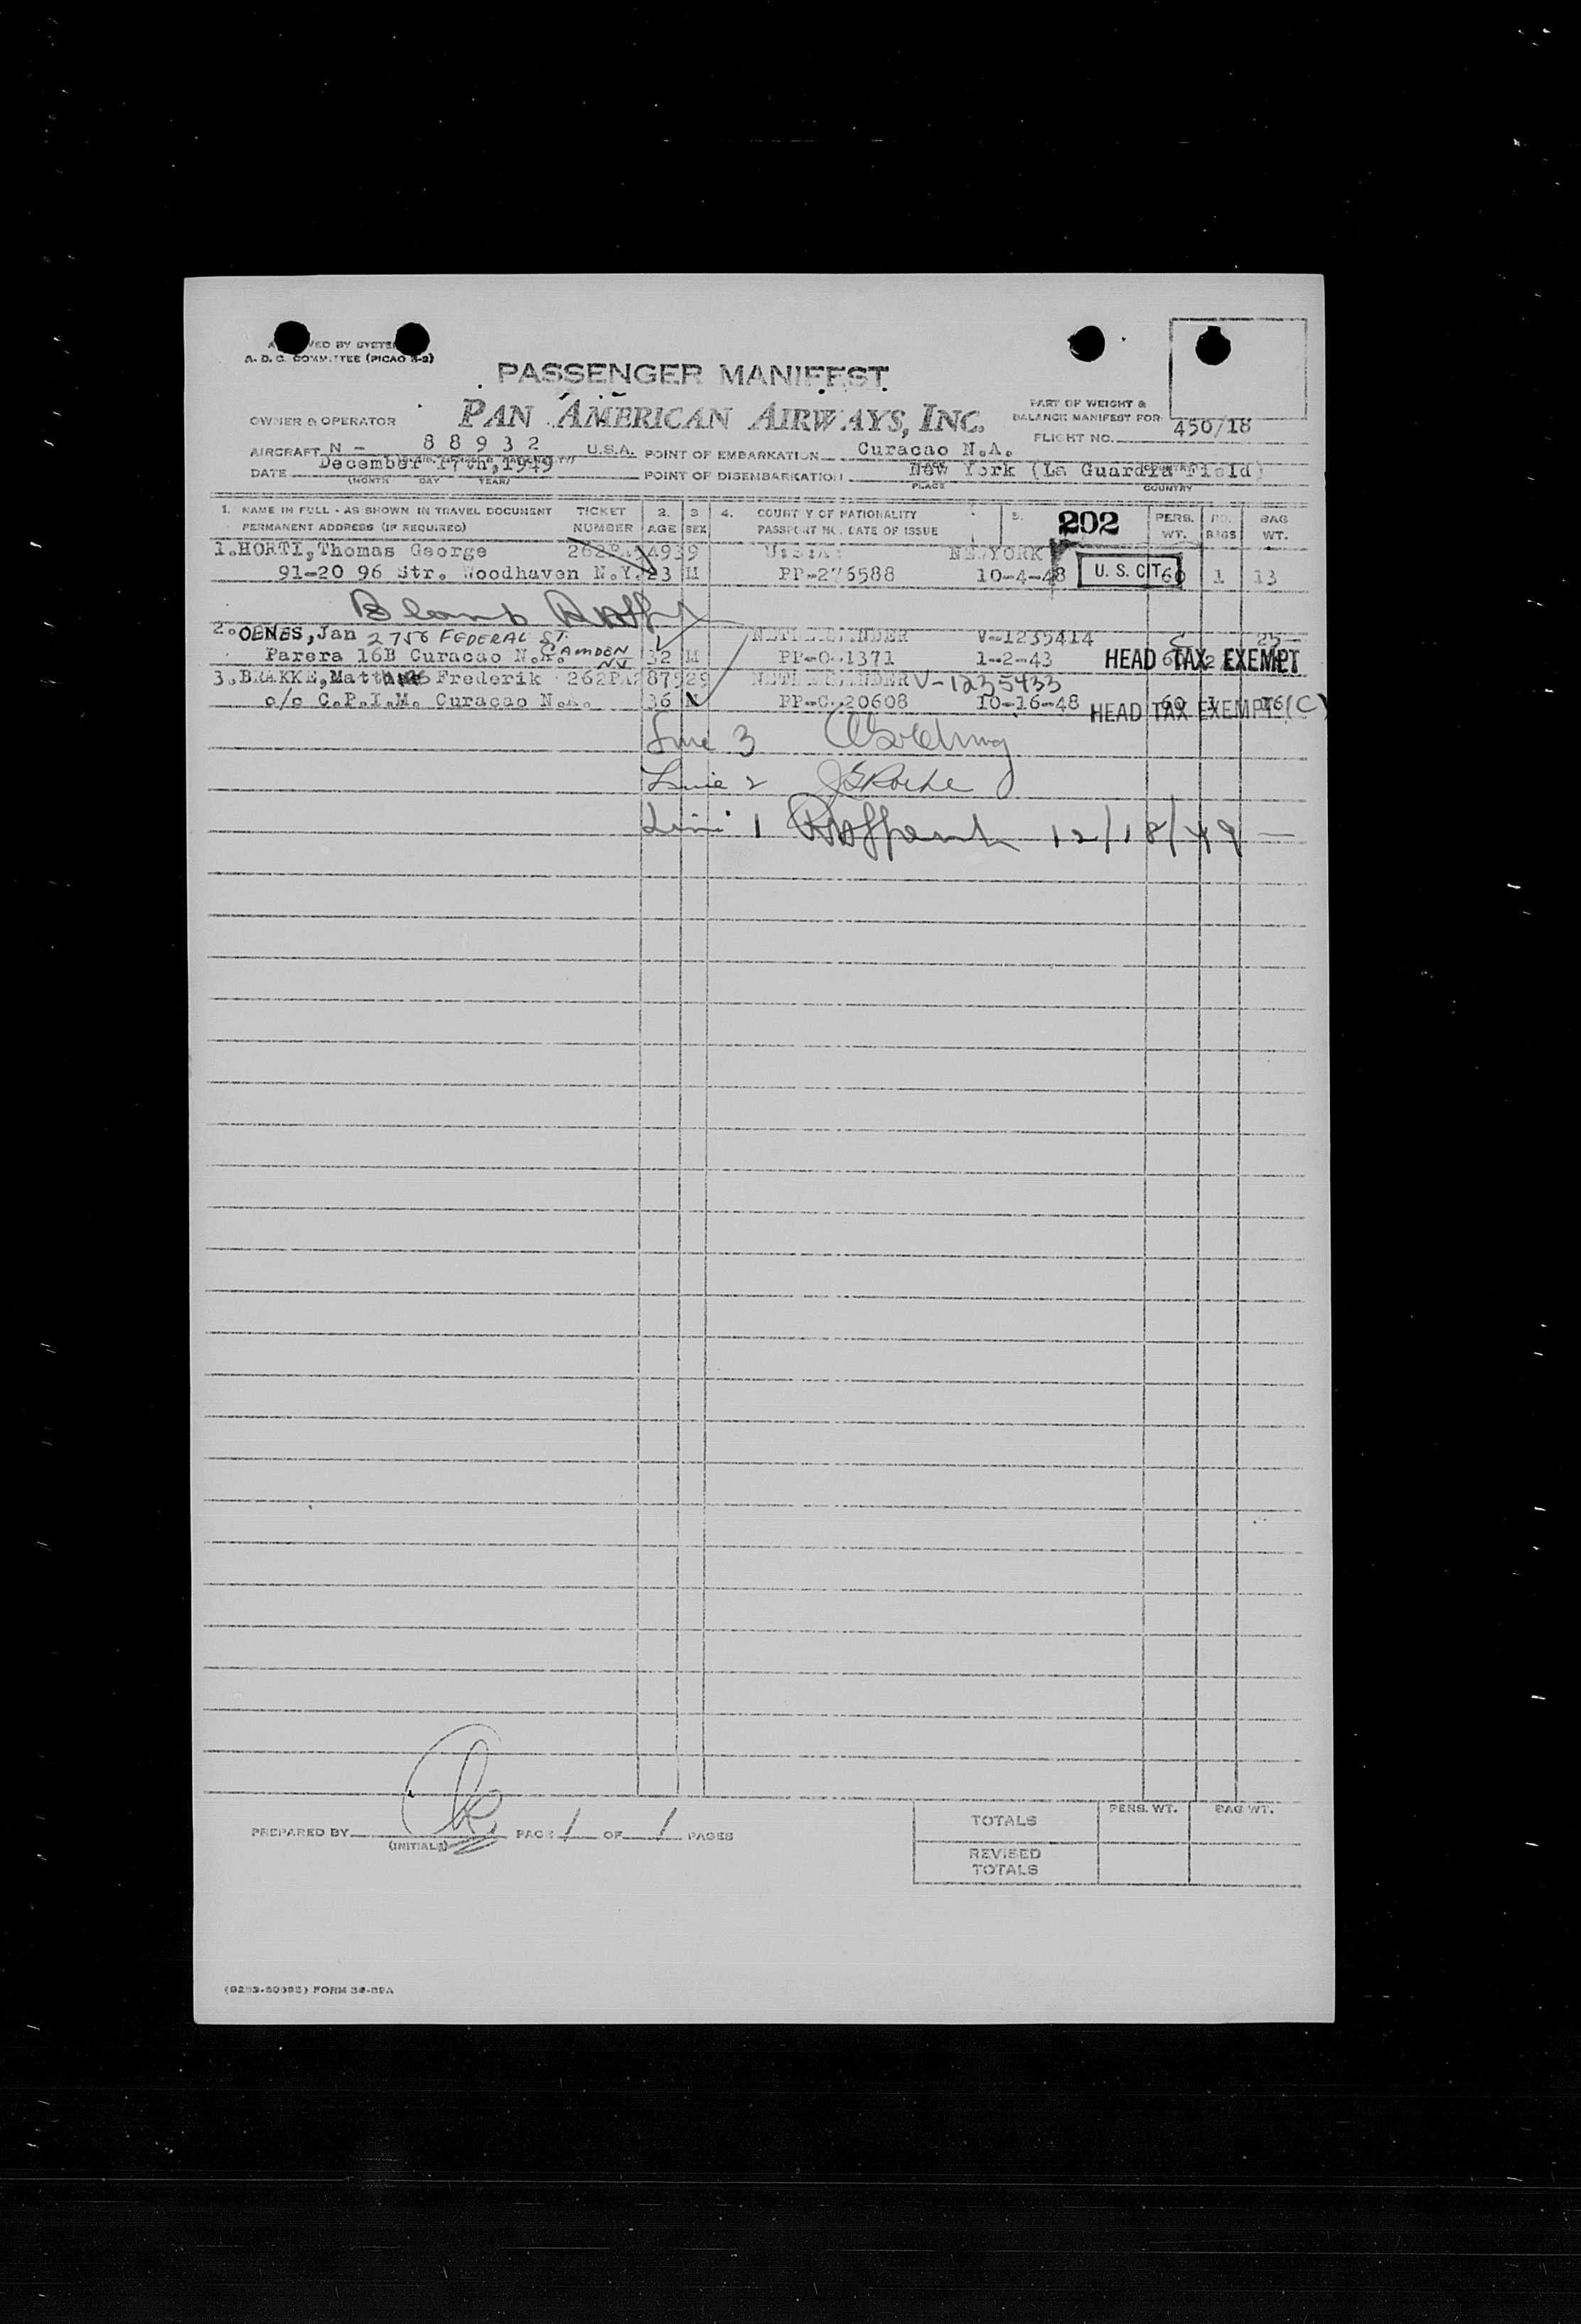 A. D. C. COMMITTEE (PICAO
PASSENGER MANIFEST
PAN AMERICAN AIRWAYS, INC.
OWNER & OPERATOR
PART OF WEIGHT &
BALANCE MANIFEST FOR
FLIGHT NO. 450/18
AIRCRAFT N - 88932 U.S.A. POINT OF EMBARKATION Curacao N.A.
DATE December 17th,1949 POINT OF DISEMBARKATION New York (La Guardia Field)
(MONTH DAY YEAR) PLACE COUNTRY
1. NAME IN FULL - AS SHOWN IN TRAVEL DOCUMENT TICKET 2. 3 4. COUNTRY OF NATIONALITY 5. 202 PERS. NO. BAG
PERMANENT ADDRESS (IF REQUIRED) NUMBER AGE SEX PASSPORT NO. DATE OF ISSUE WT. BAGS WT.
1.HORTI,Thomas George U:S:A: NEWYORK
91-20 96 Str. Woodhaven N.Y. 23 M PP-276588 10-4-48 U. S. CIT 60 1 13
2.OENES,Jan 2756 FEDERAL ST. NETHERLANDER V-1235414 25
Parera 16B Curacao N.A. CAMDEN 32 M PP-O-1371 1-2-43 HEAD TAX EXEMPT
3.BRAKKE, Frederik NETHERLANDER V-1235433
c/o C.P.I.M. Curacao N.A. 36 PP-C-20608 10-16-48 HEAD TAX EXEMPT 60 1 16 (C)
Line 3
Line 2
Line 1 12/18/49
PREPARED BY PAGE 1 OF 1 PAGES
(INITIALS)
TOTALS PERS. WT. BAG WT.
REVISED
TOTALS
FORM 36-89A